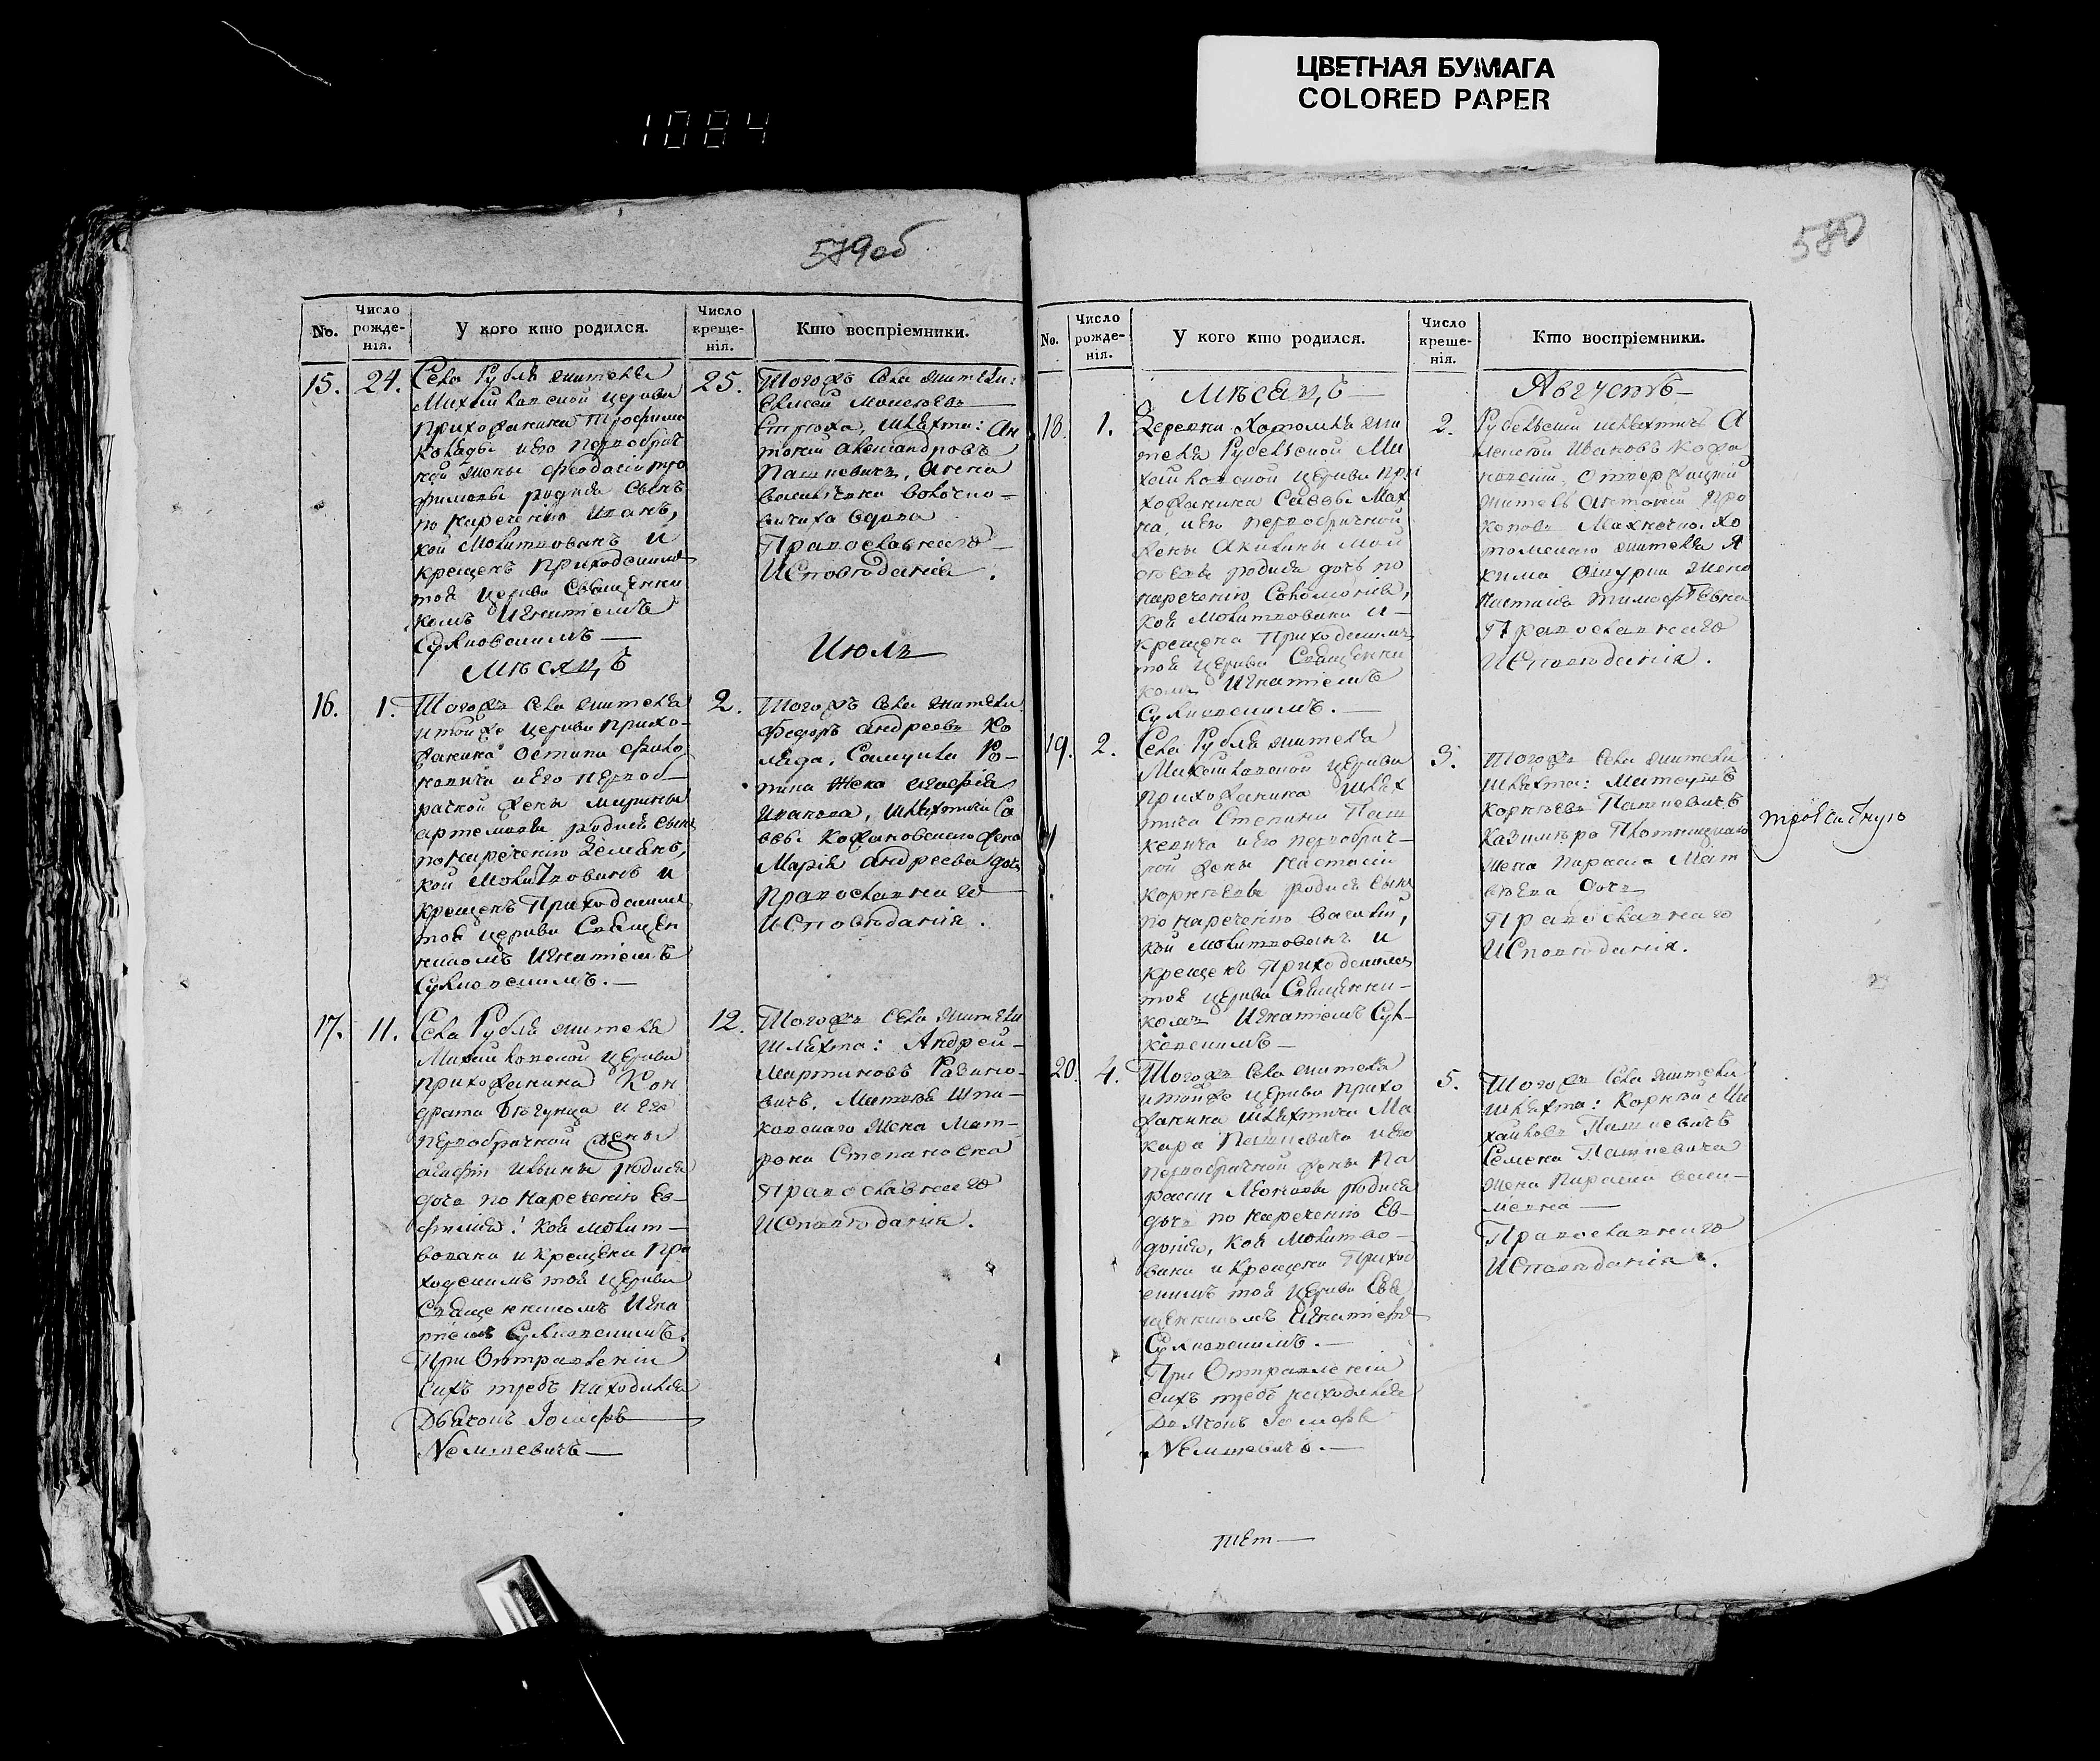 ЦВЕТНАЯ БУМАГА
COLORED PAPER
1084
579об
No.
Число рожде-нія.
У кого кто родился.
Число креще-нія.
Кто воспріемники.
15. 24.
Села Рубля жителя
Михайловской церкви
прихожанина Трофима
Коляды и его первобрач
ной жены Феодосіи Тро
фимовы родися сынъ
по нареченію Иванъ,
кой молитвованъ и
крещенъ приходскимъ
той церкви Священни
комъ Игнатіемъ
Сулковскимъ —
25.
Тогожъ села жители:
Елисей Моисеевъ
шляхта: Ан
тоній Александровъ
Пашкевичъ, Агена
вдова
Православнаго
Исповѣданія.
Мѣсяцъ
Июль
16. 1.
Тогожъ села жителя
и тойже церкви прихо-
жанина Остапа
и его первоб
рачной жены Марины
Артемовы родися сынъ
по нареченію Земанъ,
кой молитвованъ и
крещенъ приходскимъ
той церкви Священ
никомъ Игнатіемъ
Сулковскимъ. —
2.
Тогожъ села жители
Федоръ Андреевъ Ко
ляда, Самуила Ро-
мана жена Агафія
Иванова, шляхтича Са
вы Кожановскаго жена
Марія Андреева дочь
Православнаго
Исповѣданія.
17. 11.
Села Рубля жителя
Михайловской церкви
прихожанина Кон
драта Бѣгунца и его
первобрачной жены
Агафіи Ильины родися
дочь по нареченію Ев-
фимія! коя молит-
вована и крещена при
ходскимъ той церкви
Священникомъ Игна
тіемъ Сулковскимъ.
При Отправленіи
сихъ требъ находился
Дьячокъ Іосифъ
Nемшевичъ —
12.
Тогожъ села жители
шляхта: Андрей
Мартиновъ
Матвѣя Шпа-
ковскаго жена Мат-
рона Степановна
Православнаго
Исповѣданія.
580
No.
Число рожде-нія.
У кого кто родился.
Число креще-нія.
Кто воспріемники.
Мѣсяцъ —
Августъ —
18. 1.
Деревни Хотомля жи
теля Рубельской Ми
хайловской церкви при
хожанина Саввы Мах
на, и его первобрачной
жены Акилины Мои
сѣевы родися дочь по
нареченію Соломонія,
коя молитвована и —
крещена приходскимъ
той церкви Священни
комъ Игнатіемъ
Сулковскимъ. —
2.
Рубельскій шляхтичъ А
лексѣй Ивановъ Кожа
новскій,
житель Антоній Про
коповъ Хо
томскаго жителя Я
кима жена
Настасія Тимофѣевна
Православнаго
Исповѣданія.
19. 2.
Села Рубля жителя
Михайловской церкви
прихожанина шлях
тича Степана Паш
кевича и его первобрач-
ной жены Настасіи
Корнѣевы родися сынъ
по нареченію Василій,
кой молитвованъ и
крещенъ приходскимъ
той церкви Священни-
комъ Игнатіемъ Сул-
ковскимъ —
3.
Тогожъ села жители
шляхта: Матеушъ
Корнѣевъ Пашкевичъ
Казимѣра Плотницкаго
жена Параска Мат
вѣева дочь
Православнаго
Исповѣданія.
20. 4.
Тогожъ села жителя
и тойже церкви прихо
жанина шляхтича Ма
кара Пашкевича и его
первобрачной жены Па
раски родися
дочь по нареченію Ев-
докія, коя молитво-
вана и крещена приход
скимъ той церкви Свя
щенникомъ Игнатіемъ
Сулковскимъ. —
При Отправленіи
сихъ требъ находился
Дьячокъ Іосифъ
Nемшевичъ. —
5.
Тогожъ села жители
шляхта: Корней Ми
хайловъ Пашкевичъ
Семена Пашкевича
жена Параска
Православнаго
Исповѣданія.
Тет —